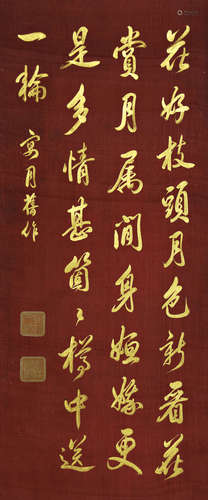 花好枝頭月色新看花
賞月属閒身姮娥更
是多情甚箇〻樽中送
一輪
月舊作